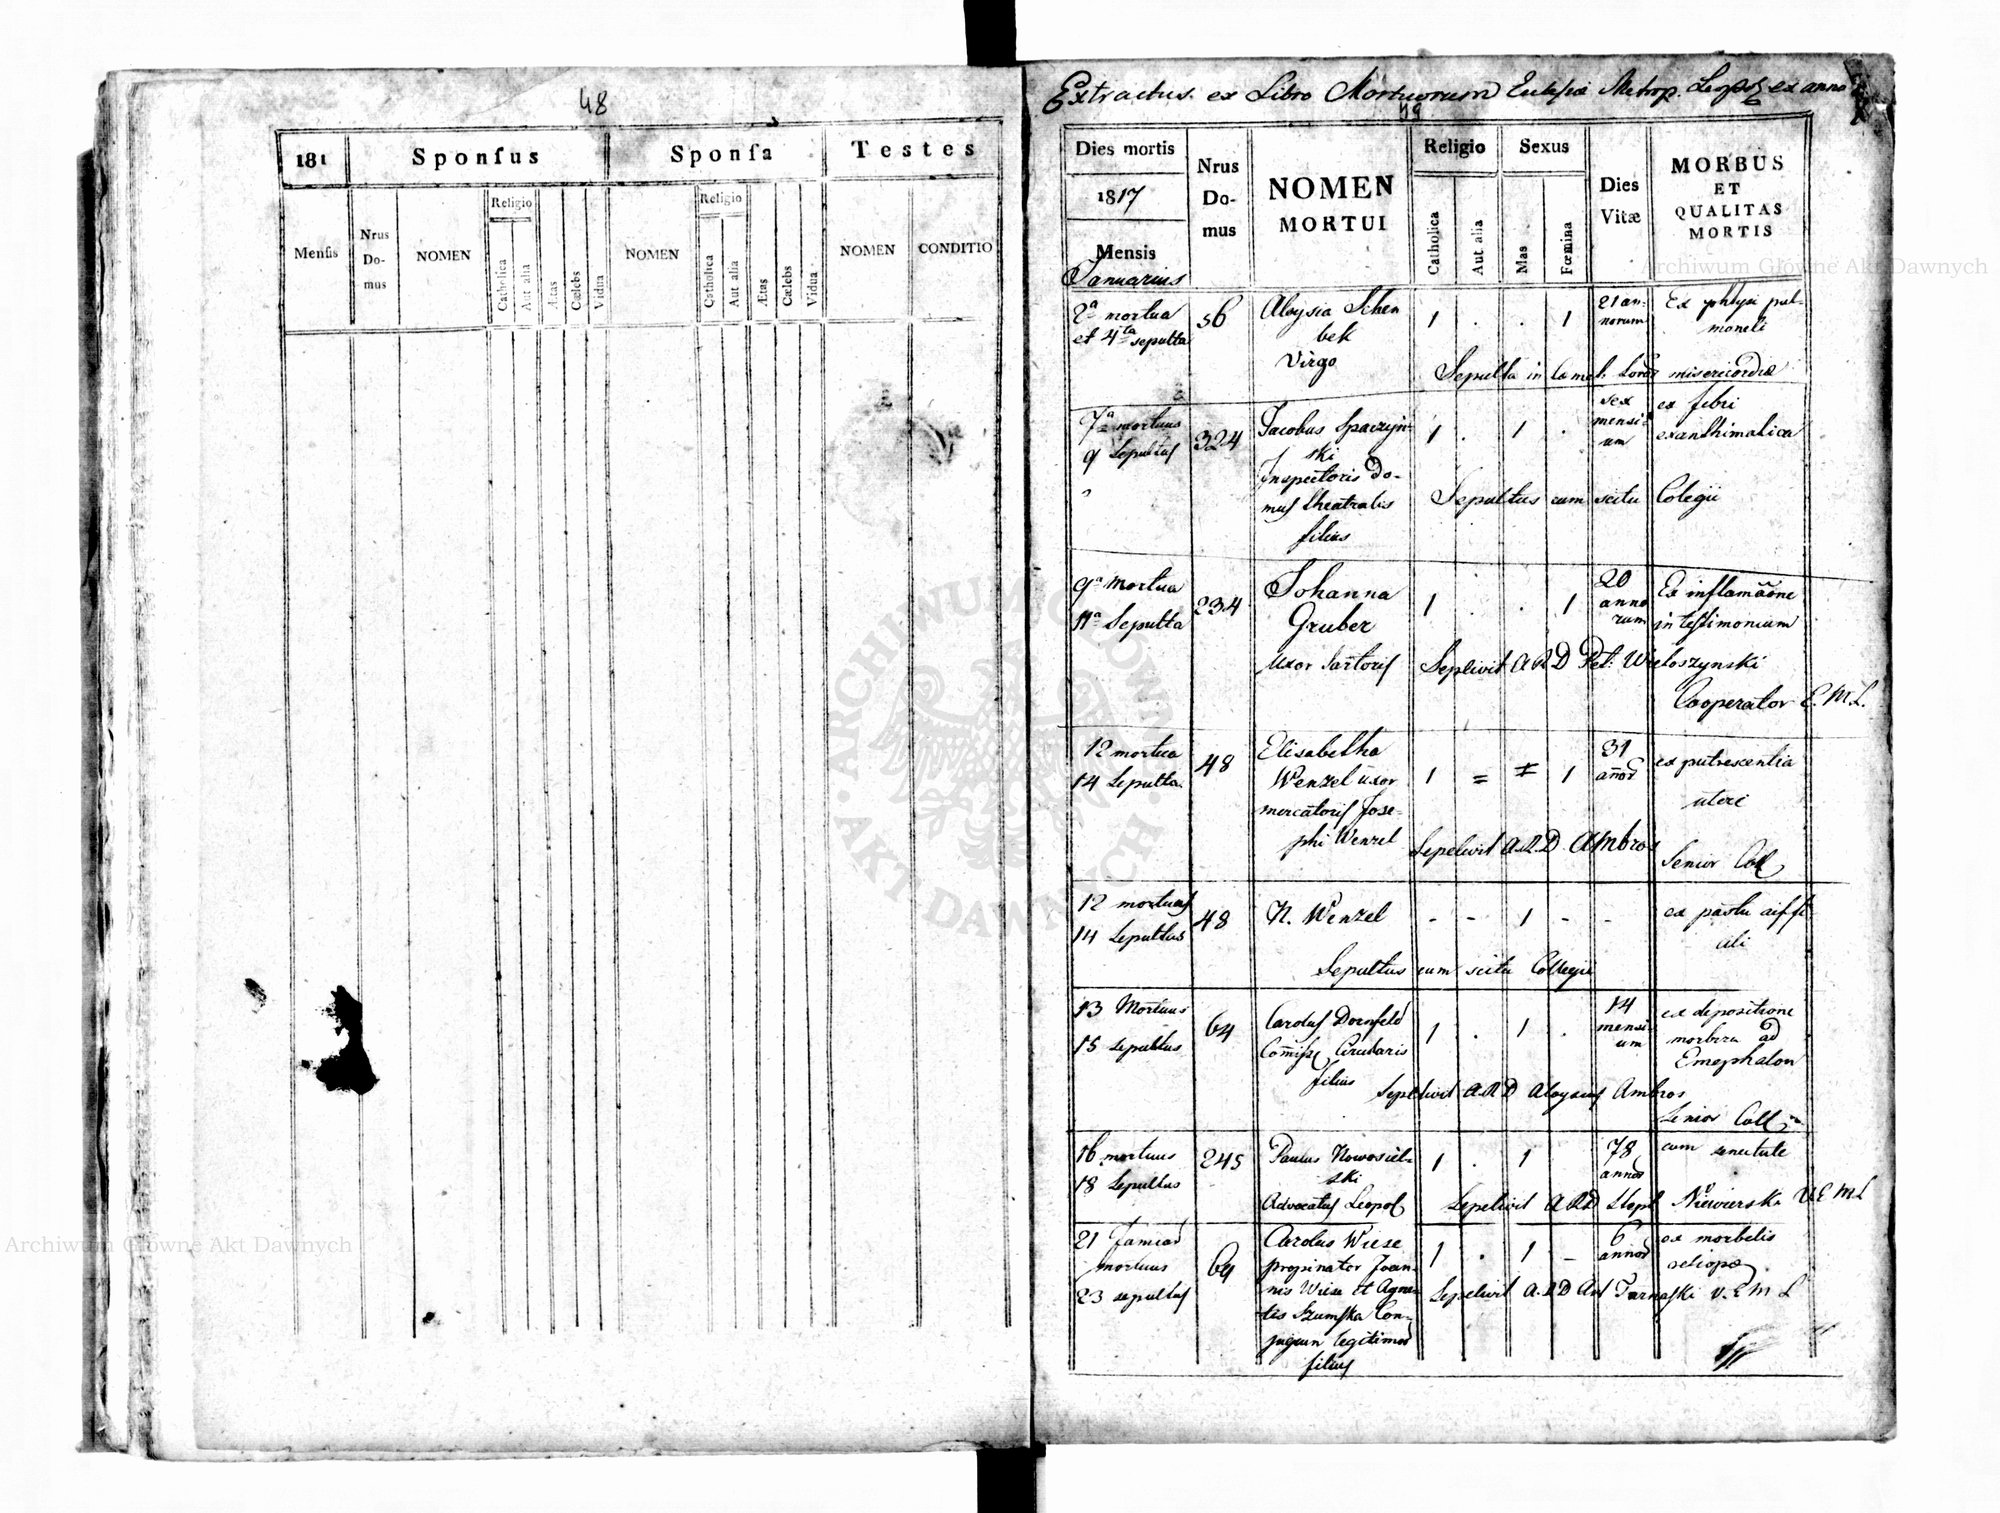 48
181
Sponſus
Sponſa
Testes
Menſis
Nrus
Do-
mus
NOMEN
Religio
Catholica
Aut alia
Ætas
Cœlebs
Vidua
NOMEN
Religio
Catholica
Aut alia
Ætas
Cœlebs
Vidua
NOMEN
CONDITIO
Extractus ex Libro Mortuorum Eclesiæ Metrop. Leopol ex anno
49
Dies mortis
1817
Mensis
Januarius
Nrus
Do-
mus
NOMEN
MORTUI
Religio
Catholica
Aut alia
Sexus
Mas
Fœmina
Dies
Vitæ
MORBUS
ET
QUALITAS
MORTIS
2ª mortua
et 4ta sepulta
56
Aloysia Schen
bek
Virgo
1 . . 1
21 an-
norum
Ex phtysi pul-
moneli
Sepulta in misericordiæ
7ª mortuus
9 Sepultus
324
Jacobus Sparzyn-
ski
Inspectoris Do-
mus theatralis
filius
1 . 1 .
sex
mensi-
um
ex febri
exanthimatica
Sepultus cum scitu Colegii
9ª mortua
11ª Sepulta
234
Johanna
Gruber
Uxor Sartoris
1 . . 1
20
anno
rum
Ex inflamãone
intestimonium
Sepelivit A R D Pet: Wieloszynski
Cooperator E. M. L.
12 mortua
14 Sepulta
48
Elisabetha
Wenzel uxor
mercatoris Jose-
phi Wenzel
1 = = 1
31
ex putrescentia
uteri
Sepelivit A.R.D Ambros
Senior Coll
12 mortuus
14 Sepultus
48
N. Wenzel
- - 1 - -
ex partu
Sepultus cum scitu Collegii
13 Mortuus
15 sepultus
64
Carolus Dornfeld
Comiss Circularis
filius
1 . 1 .
14
mensi
um
ex depositione
ad
Emephalon
Sepelivit A R D Aloysius Ambros
Senior Coll
16 mortuus
18 Sepultus
245
Paulus Nowosiel-
ski
Advocatus Leopol
1 . 1
78
cum senectute
Sepelivit A R D Steph Niewierski V E M L
21
mortuus
23 sepultus
69
Carolus Wiese
propinator Joan-
nis Wiese et Agne-
tis Szumska Con-
jugum legitimor
filius
1 . 1 -
6
ex morbelis
Sepelivit A.R.D Ant Tarnaski V. E M L
Archiwum Główne Akt Dawnych
Archiwum Główne Akt Dawnych
ARCHIWUM GŁÓWNE
AKT DAWNYCH